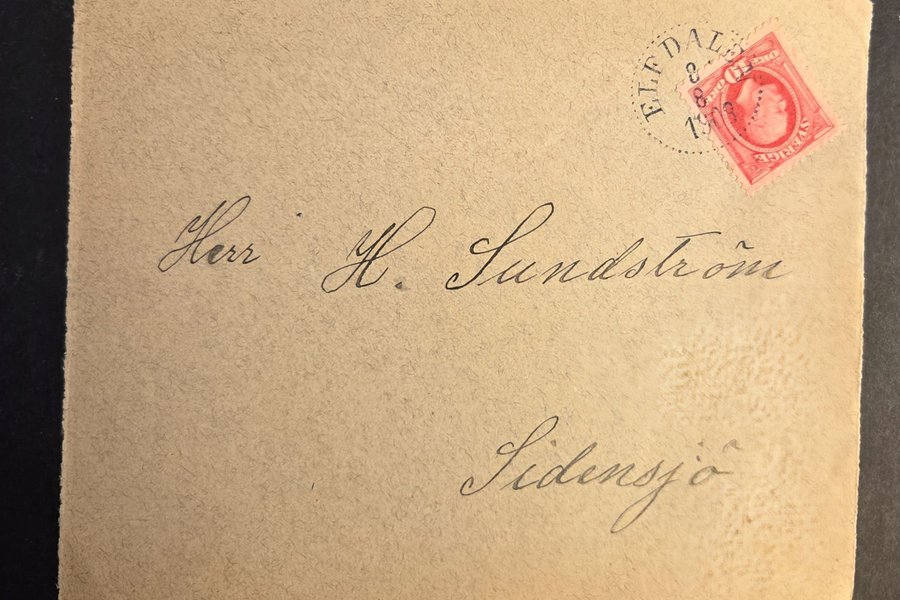 ELFDALEN
8
8
1903
10
SVERIGE
Herr H. Sundström
Sidensjö